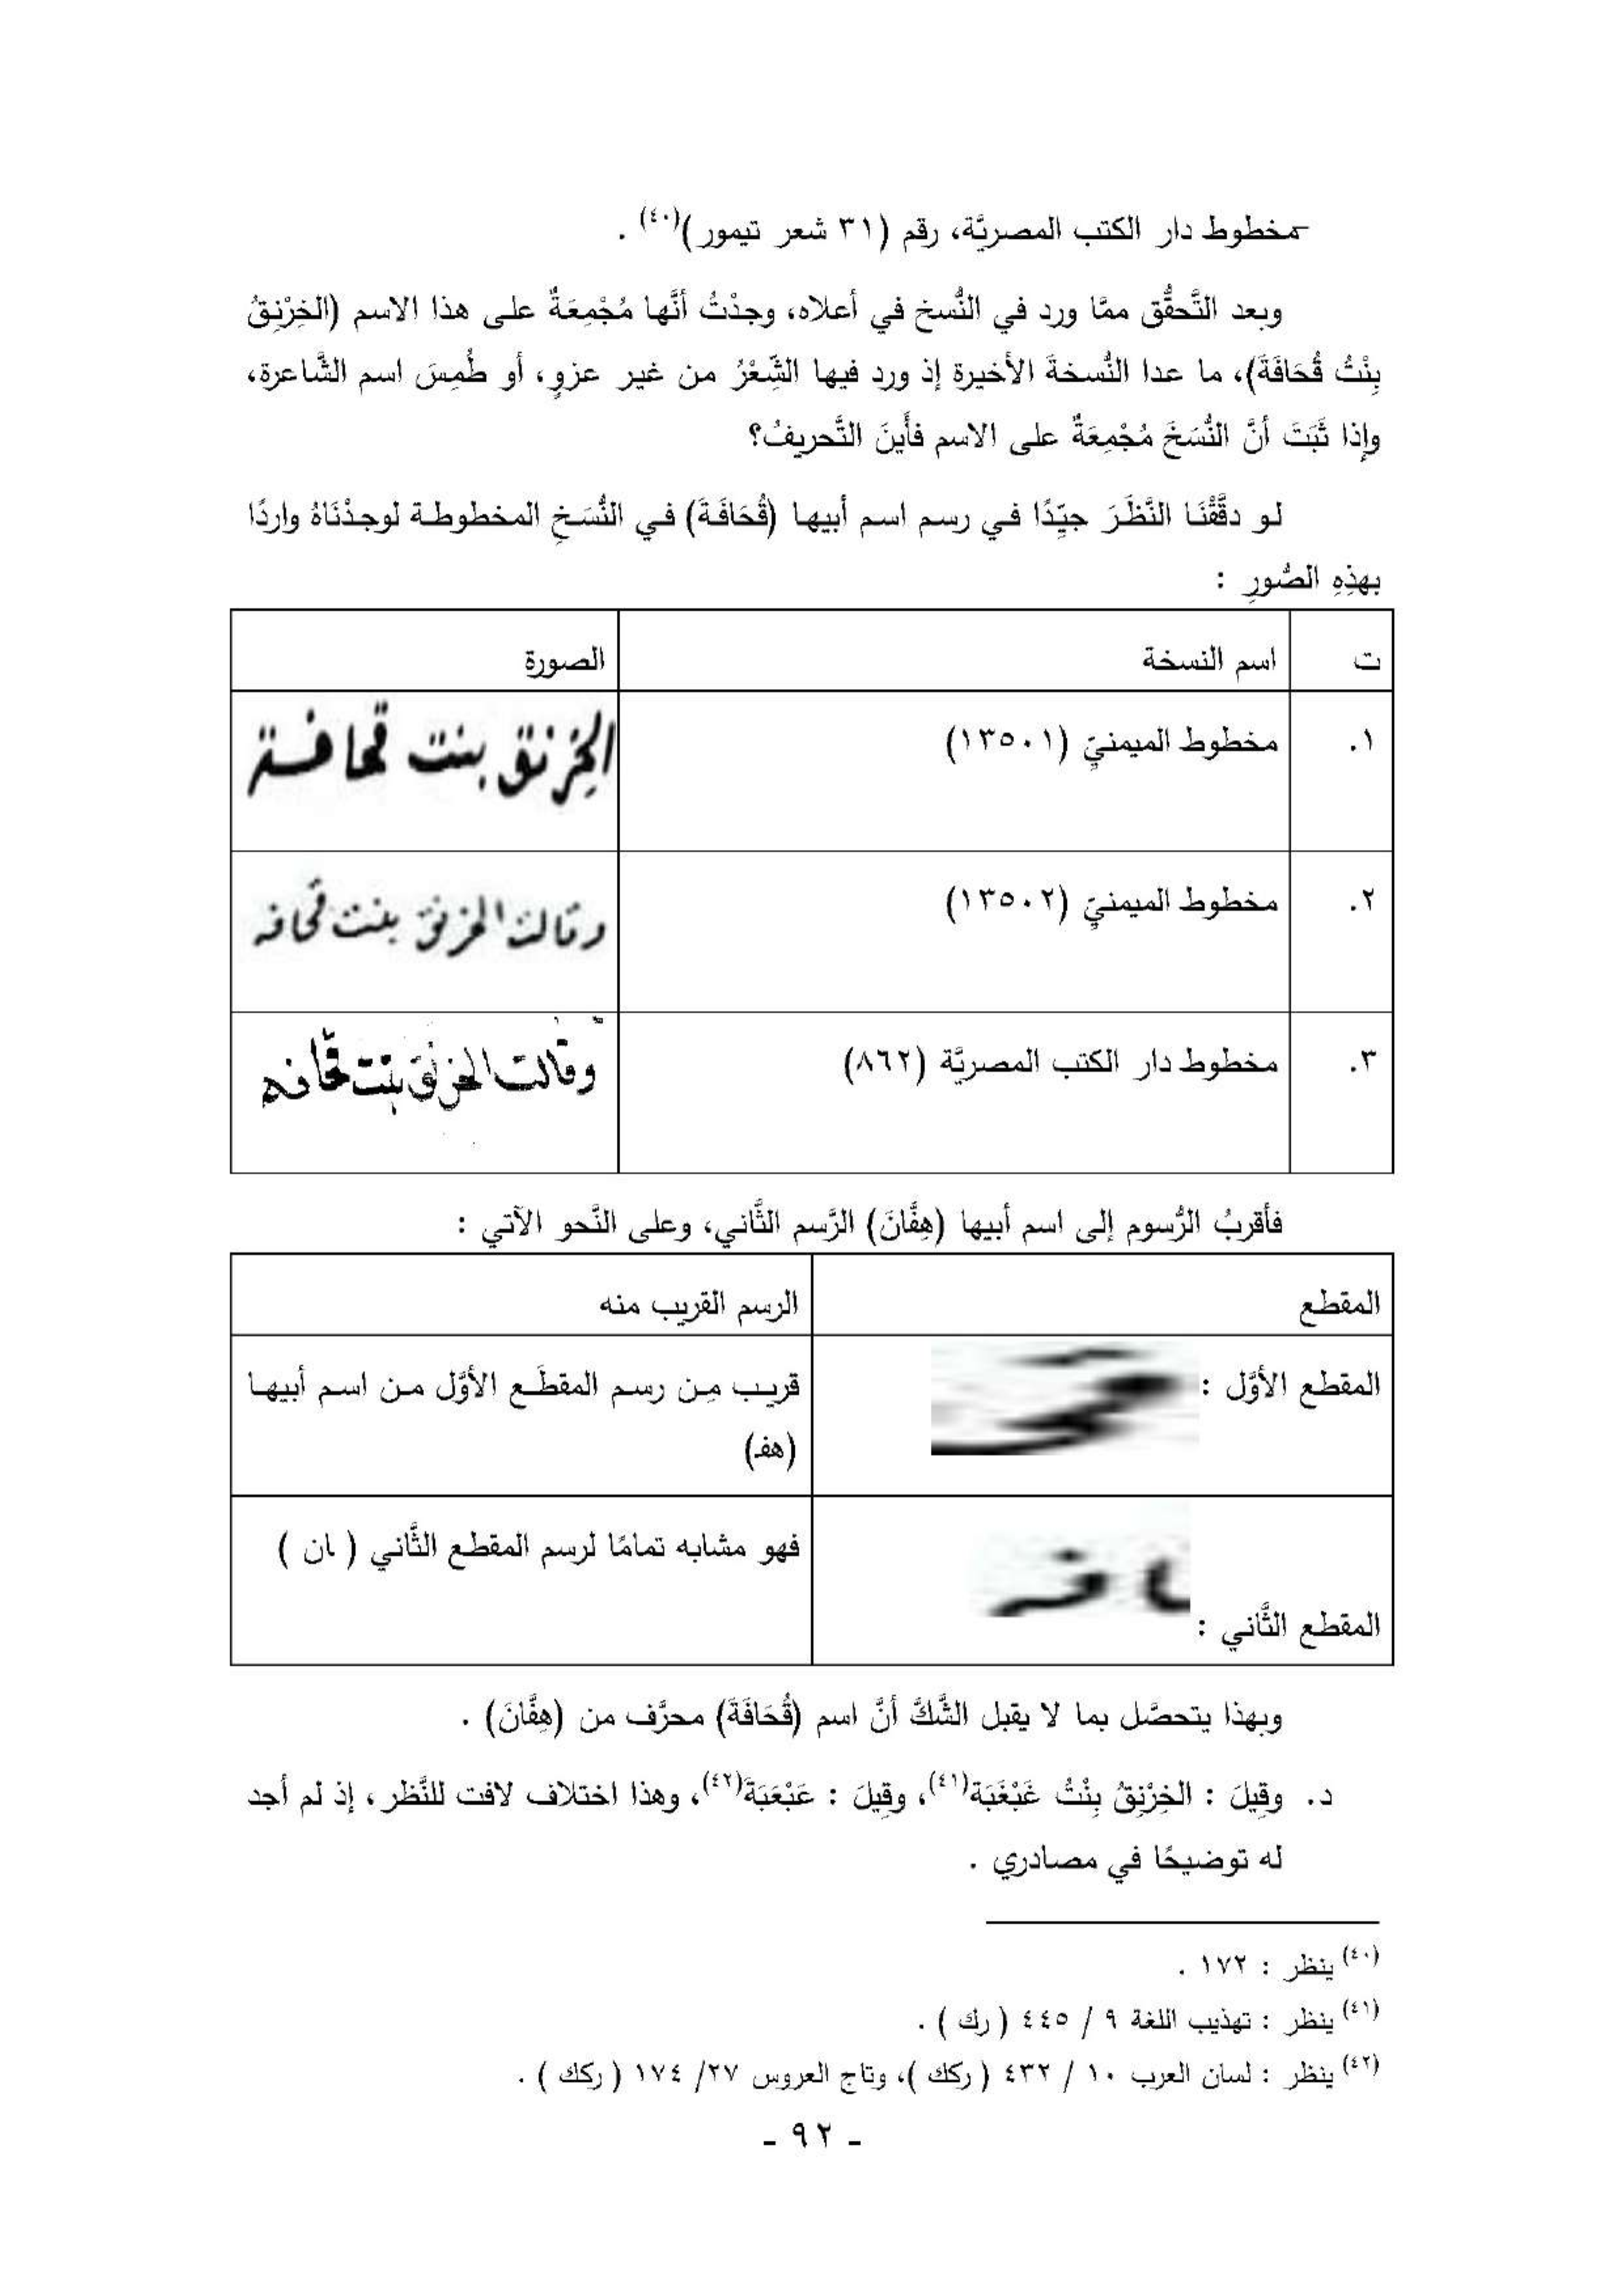 -مخطوط دار الكتب المصريَّة، رقم (٣١ شعر تيمور)(٤٠) .
وبعد التَّحقُّق ممَّا ورد في النُّسخ في أعلاه، وجدْتُ أنَّها مُجْمِعَةٌ على هذا الاسم (الخِرْنِقُ
بِنْتُ قُحَافَةَ)، ما عدا النُّسخةَ الأخيرة إذ ورد فيها الشِّعْرُ من غير عزوٍ، أو طُمِسَ اسم الشَّاعرة،
وإذا ثَبَتَ أنَّ النُّسَخَ مُجْمِعَةٌ على الاسم فأَينَ التَّحريفُ؟
لو دقَّقْنَا النَّظَرَ جيِّدًا في رسم اسم أبيها (قُحَافَةَ) في النُّسَخِ المخطوطة لوجدْنَاهُ واردًا
بهذِهِ الصُّورِ :
ت اسم النسخة الصورة
١. مخطوط الميمنيِّ (١٣٥٠١) الخِرنق بنت قحافة
٢. مخطوط الميمنيِّ (١٣٥٠٢) وقالت الخرنق بنت قحافه
٣. مخطوط دار الكتب المصريَّة (٨٦٢) وقالت الخرنق بنت قحافه
فأقربُ الرُّسوم إلى اسم أبيها (هِفَّانَ) الرَّسم الثَّاني، وعلى النَّحو الآتي :
المقطع الرسم القريب منه
المقطع الأوَّل : قريب مِن رسم المقطَع الأوَّل من اسم أبيها
(هف)
فهو مشابه تمامًا لرسم المقطع الثَّاني ( ـان )
المقطع الثَّاني :
وبهذا يتحصَّل بما لا يقبل الشَّكَّ أنَّ اسم (قُحَافَةَ) محرَّف من (هِفَّانَ) .
د. وقِيلَ : الخِرْنِقُ بِنْتُ غَبْغَبَة(٤١)، وقِيلَ : عَبْعَبَةَ(٤٢)، وهذا اختلاف لافت للنَّظر، إذ لم أجد
له توضيحًا في مصادري .
(٤٠) ينظر : ١٧٢ .
(٤١) ينظر : تهذيب اللغة ٩ / ٤٤٥ ( رك ) .
(٤٢) ينظر : لسان العرب ١٠ / ٤٣٢ ( ركك )، وتاج العروس ٢٧/ ١٧٤ ( ركك ) .
- ٩٢ -